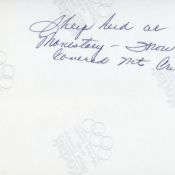 Sheep herd at
Monestary - Snow
Covered Mt